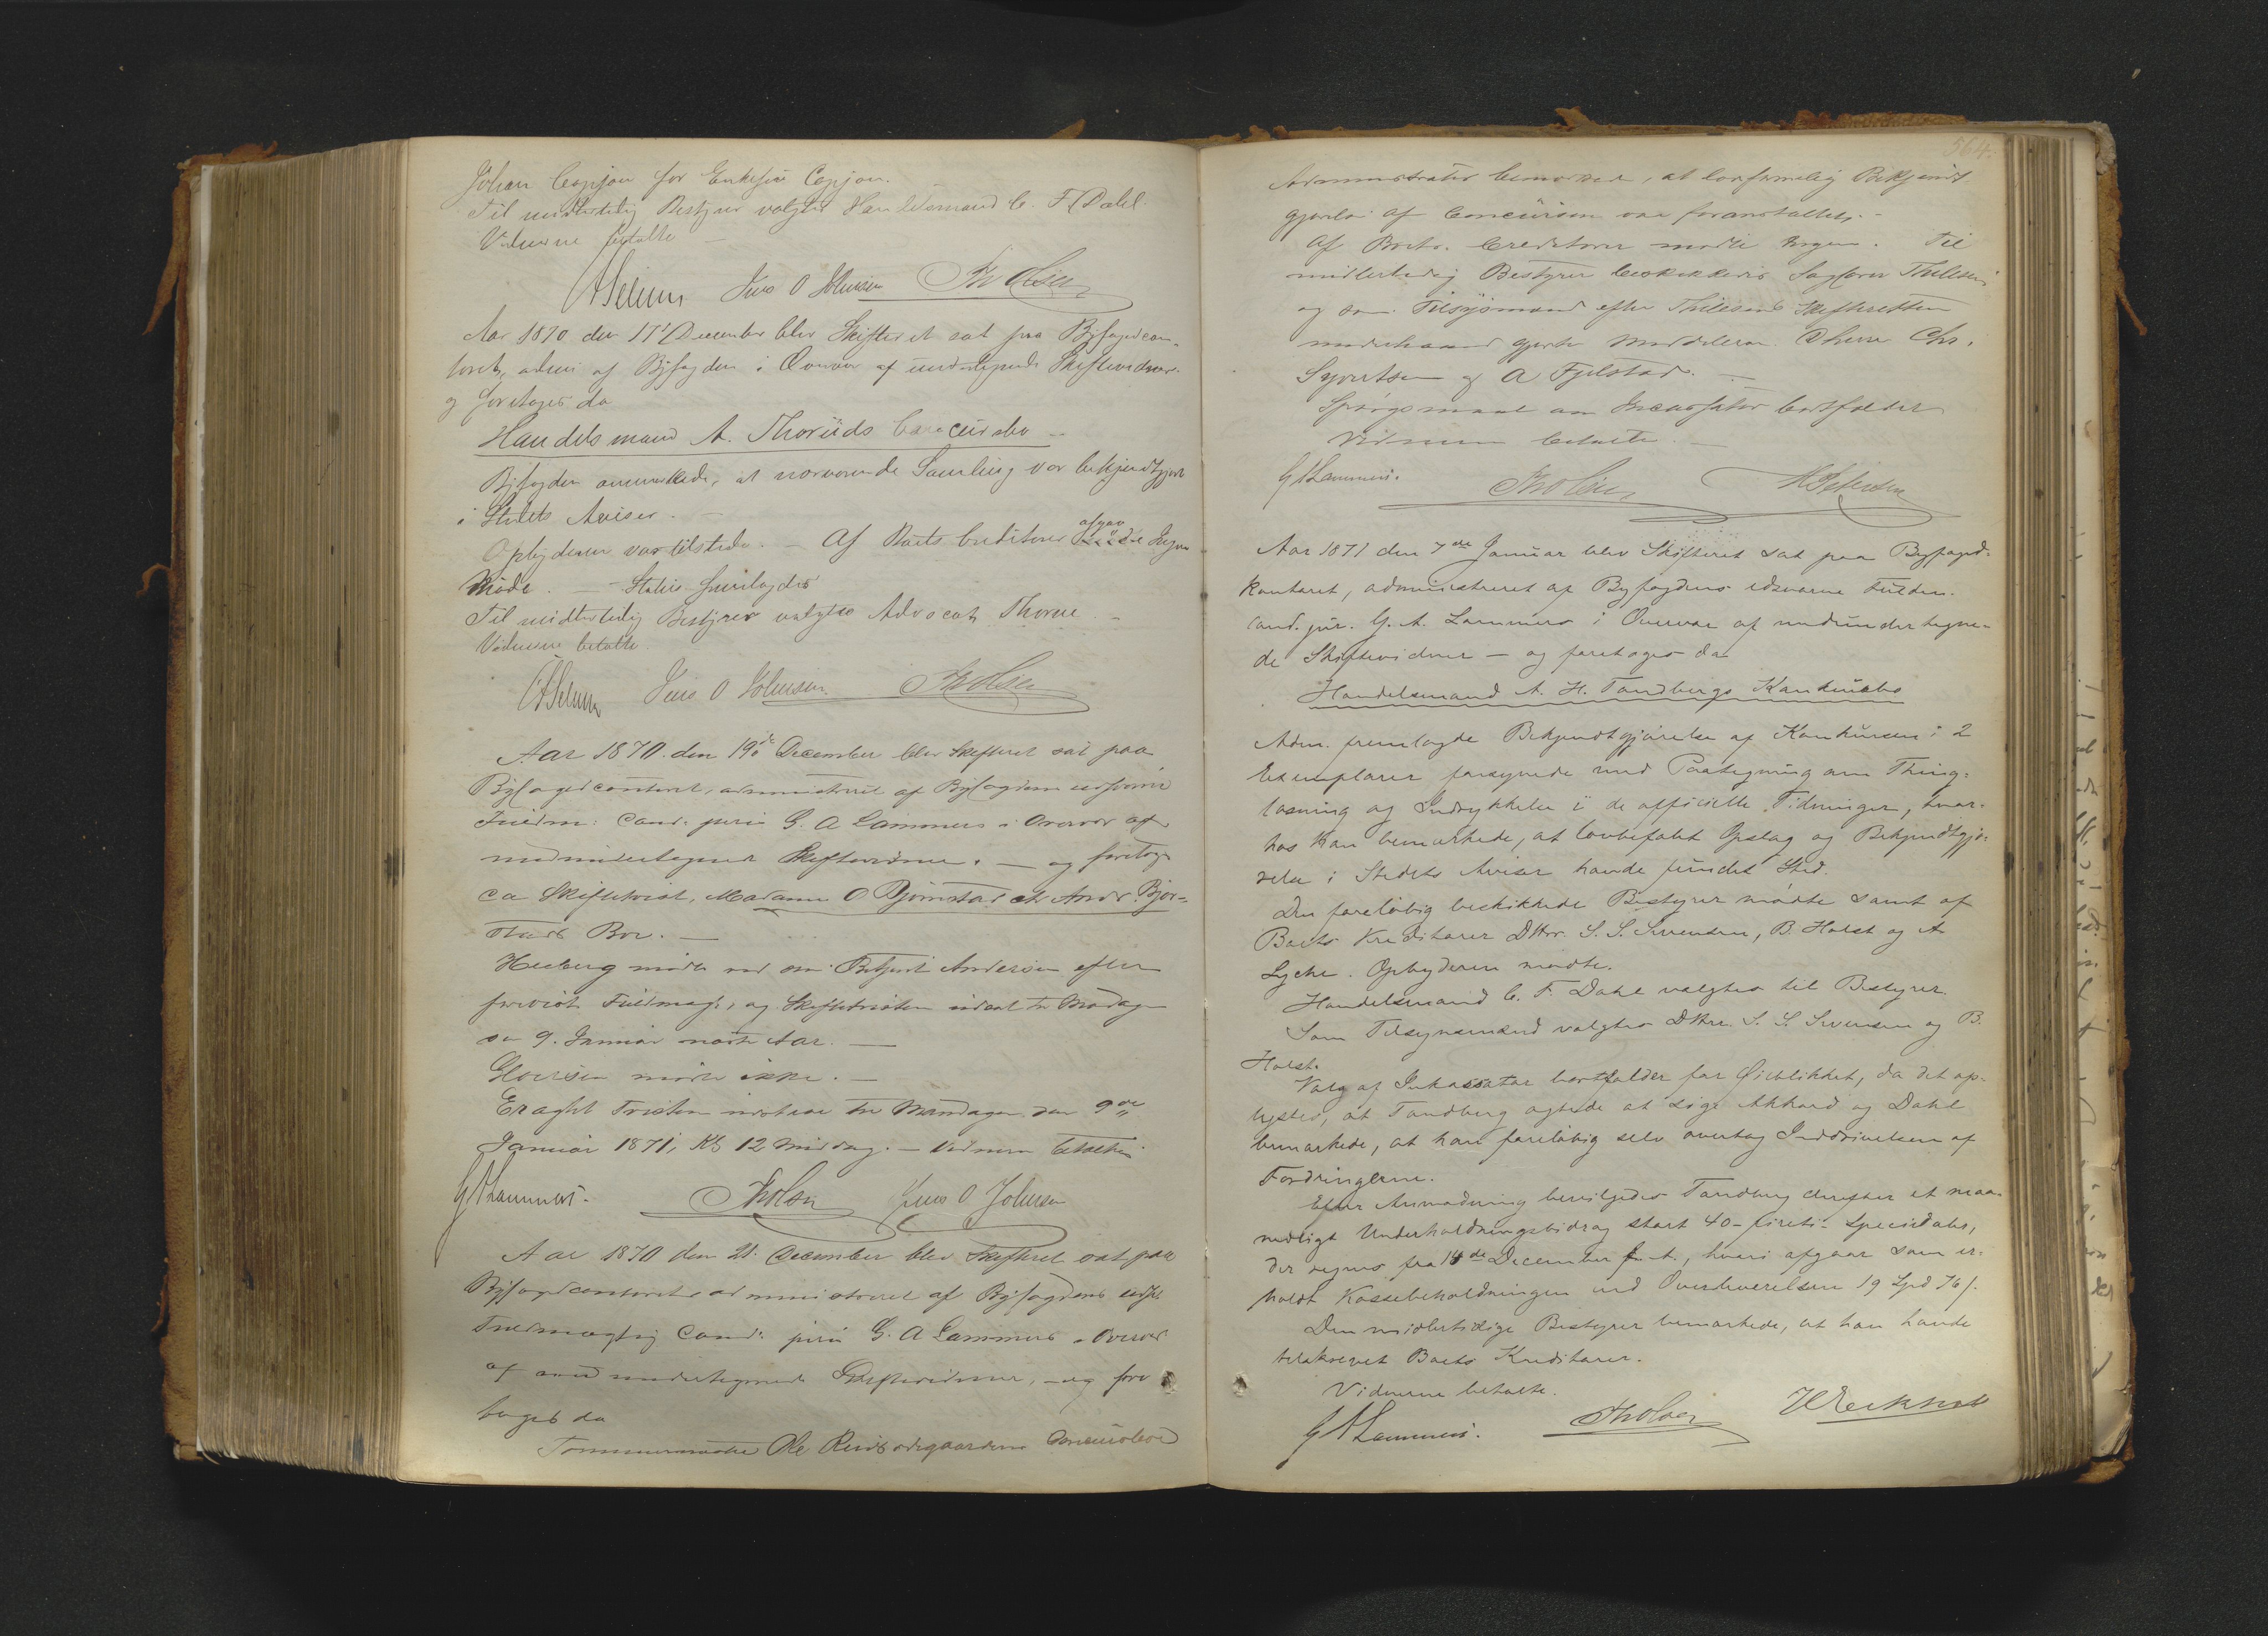 Johan Copjon for Enkefru Copjon.
Til midlertidig Bestyrer valgtes Handelsmand C. F. Dahl
Vidnerne betalte —
Jens O Johnsen Th Olsen
Aar 1870 den 17' December blev Skifteret sat paa Byfogedcon„
toret, adm. af Byfogden i Overvær af undertegnede Skiftevidner
og foretoges da
Handelsmand A. Thoruds Concursbo —
Byfogden anmærkede, at nærværende Samling var bekjendtgjort
i Stedets Aviser. —
Opbyderen var tilstede. — Af Boets Creditorer afgav Ingen
Møde. — Status fremlagdes
Til midlertidig Bestyrer valgtes Advocat Thorne. —
Vidnerne betalte.
Jens O Johnsen. Th Olsen
Aar 1870. den 19de December blev Skifteret sat paa
Byfogedcontoret, administreret af Byfogdens edsvorne
Fuldm: Cand. juris G. A Lammers i Overvær af
medundertegnede Skiftevidner. — og foretoges
da Skiftetvist, Madame O Bjørnstad ctr Andr. Bjør=
stads Bo. —
Heiberg mødte ved sin Betjent Andersen efter
forevist Fuldmagt, og Skiftetvisten udsat til Mandag
den 9. Januar næste Aar. —
mødte ikke. —
Eragtet Tvisten udsættes til Mandagen den 9de
Januar 1871, Kl 12 Middag. — Vidnerne betaltes.
G A Lammers. Th Olsen Jens O Johnsen
Aar 1870 den 21. December blev Skifteret sat paa
Byfogedcontoret administreret af Byfogdens edsv.
Fuldmægtig Cand: juris G. A Lammers i Overvær
af medundertegnede Skiftevidner, — og fore
toges da
Tømmermester Ole Concursbo
564.
Administrator bemærkede, at lovformelig Bekjendt
gjørelse af Concursen var foranstaltet. —
Af Boets Creditorer mødte Ingen. Til
midlertidig Bestyrer beskikkedes Sagfører Thilesen
og som Tilsynsmænd efter Thilesens Skifteretten
underhaanden gjorte Meddelelser DHerre Chr.
Syvertsen og A Fjelstad. —
Spørgsmaal om Incassator bortfalder
Vidnerne betalte. —
G A Lammers. Th Olsen H Petersen
Aar 1871 den 7de Januar blev Skifteret sat paa Byfoged=
kontoret, administreret af Byfogdens edsvorne Fuldm.
cand. jur. G. A. Lammers i Overvær af medunderteg­ne=
de Skiftevidner — og foretoges da
Handelsmand A. H. Tandbergs Konkursbo
Adm. fremlagde Bekjendtgjørelse af Konkursen i 2
Exemplarer forsynede med Paategning om Thing=
læsning og Indrykkelse i de officielle Tidninger, hvor=
hos han bemærkede, at lovbefalet Opslag og Bekjendtgjø=
relse i Stedets Aviser havde fundet Sted.
Den foreløbig beskikkede Bestyrer mødte samt af
Boets Kreditorer DHrr. S. S. Svendsen, B. Holst og A
Lyche. Opbyderen mødte.
Handelsmand C. F. Dahl valgtes til Bestyrer.
Som Tilsynsmænd valgtes DHrr. S. S. Svensen og B.
Holst.
Valg af Inkassator bortfalder for Øieblikket, da det op=
lystes, at Tandberg agtede at søge Akkord og Dahl
bemærkede, at han foreløbig selv overtog Inddrivelsen af
Fordringerne.
Efter Anmodning bevilgedes Tandberg derefter et maa=
nedligt Underholdningsbidrag stort 40 - fireti - Speciedaler,
der regnes fra 14de December f. A., hvori afgaar som er=
holdt Kassebeholdningen ved Overleverelsen 19 Spd 76 s.
Den midlertidige Bestyrer bemærkede, at han havde
tilskrevet Boets Kreditorer.
Vidnerne betalte.
G A Lammers. Th Olsen